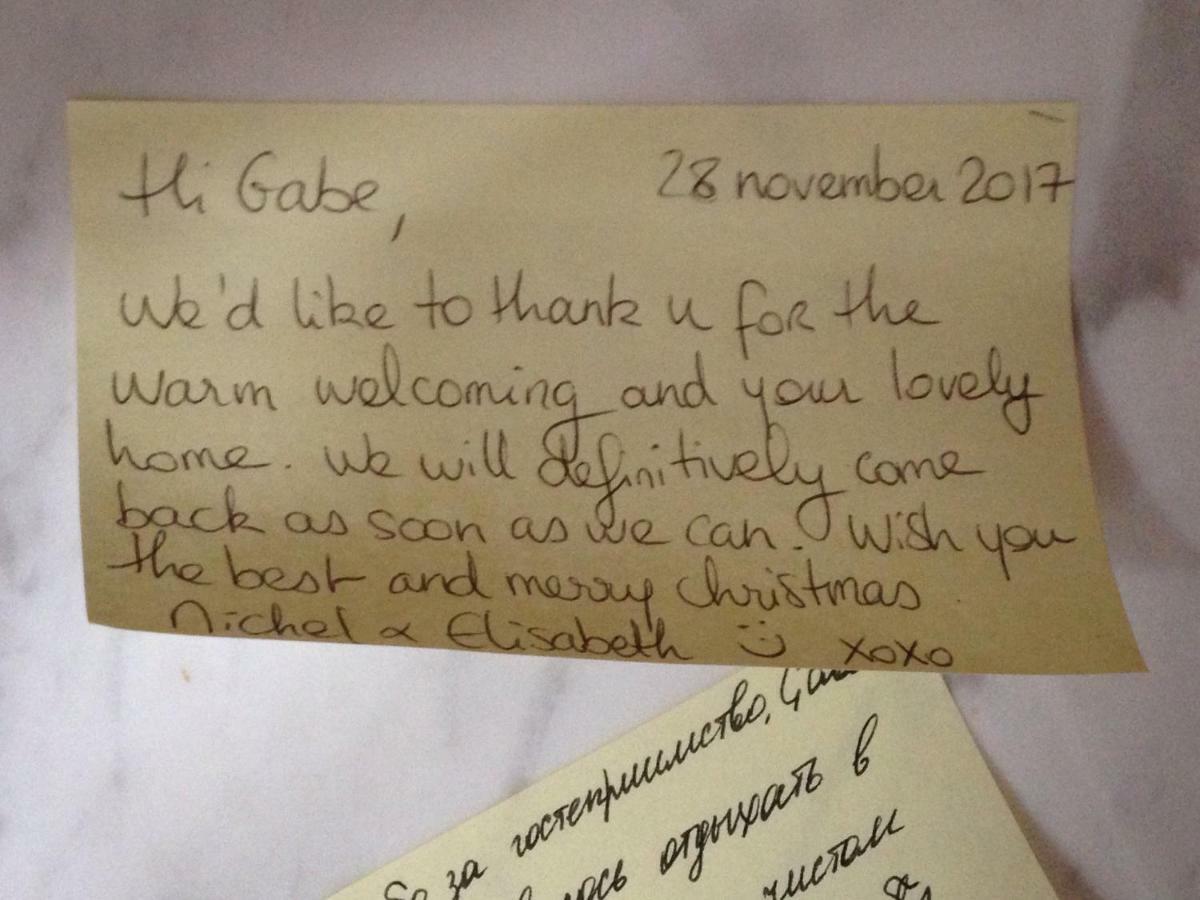 Hi Gabe, 28 november 2017
We'd like to thank u for the
warm welcoming and your lovely
home. We will definitively come
back as soon as we can. Wish you
the best and merry christmas
Michel & Elisabeth :) xoxo
за гостеприимство,
отдыхать в
чистом